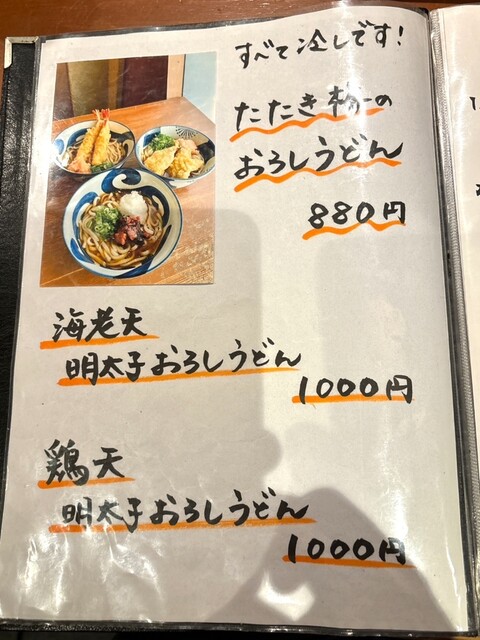 すべて冷しです!
たたき梅の
おろしうどん
880円
海老天
明太子おろしうどん
1000円
鶏天
明太子おろしうどん
1000円